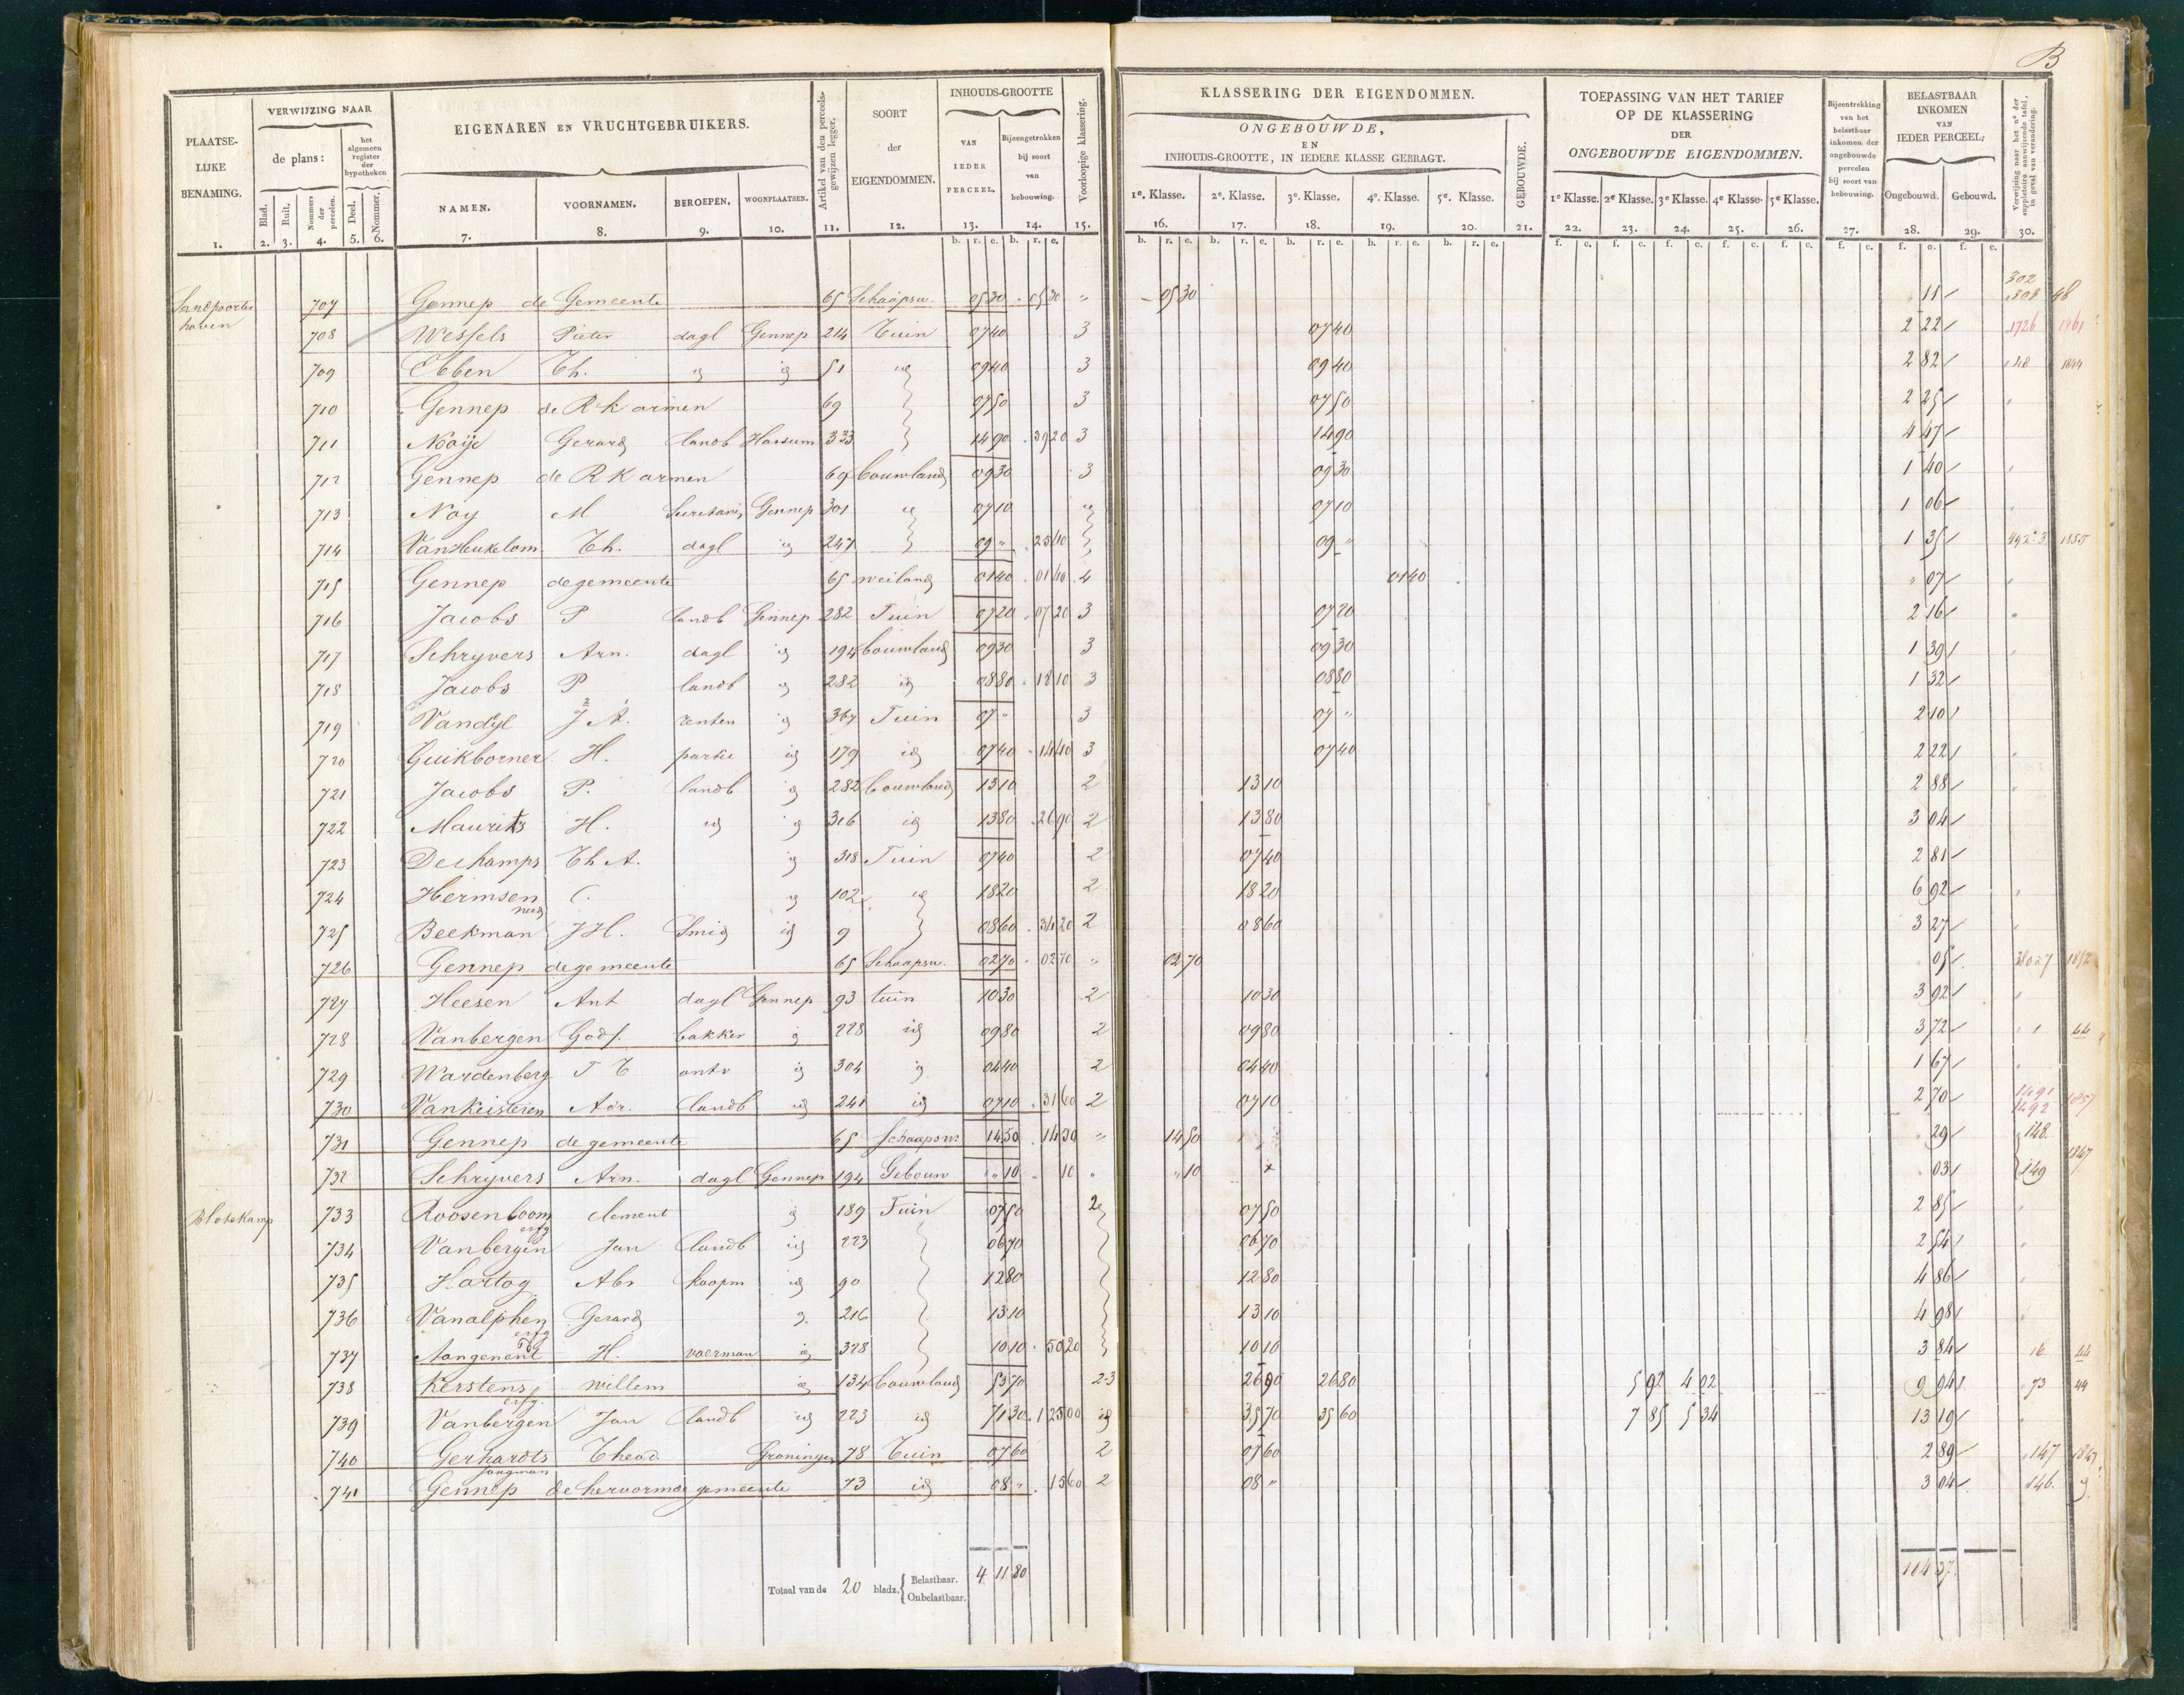 B
PLAATSELIJKE BENAMING. 1.
VERWIJZING NAAR
de plans:
Blad. 2. Ruit. 3. Nommers der perceelen. 4.
het algemeen register der hypotheken
Deel. 5. Nommer. 6.
EIGENAREN EN VRUCHTGEBRUIKERS.
NAMEN. 7. VOORNAMEN. 8. BEROEPEN. 9. WOONPLAATSEN. 10.
Artikel van den perceelsgewijzen legger. 11.
SOORT der EIGENDOMMEN. 12.
INHOUDS-GROOTTE
VAN IEDER PERCEEL. 13. Bijeengetrokken bij soort van bebouwing. 14.
Voorloopige klassering. 15.
KLASSERING DER EIGENDOMMEN.
ONGEBOUWDE,
EN
INHOUDS-GROOTTE, IN IEDERE KLASSE GEBRAGT.
1e. Klasse. 16. 2e. Klasse. 17. 3e. Klasse. 18. 4e. Klasse. 19. 5e. Klasse. 20. GEBOUWDE. 21.
TOEPASSING VAN HET TARIEF
OP DE KLASSERING
DER
ONGEBOUWDE EIGENDOMMEN.
1e Klasse. 22. 2e Klasse. 23. 3e Klasse. 24. 4e Klasse. 25. 5e Klasse. 26.
Bijeentrekking van het belastbaar inkomen der ongebouwde percelen bij soort van bebouwing. 27.
BELASTBAAR INKOMEN VAN IEDER PERCEEL.
Ongebouwd. 28. Gebouwd. 29.
Verwijzing naar het no. der suppletoire aanwijzende tafel, in geval van verandering. 30.
707 Gennep de Gemeente 65 Schaapsw. 05 30 05 30 " 05 30 11 302 303 48
hoven 708 Wessels Pieter dagl Gennep 214 Tuin 07 40 3 07 40 2 22 1726 1861
709 Ebben Th. id id 51 id 09 40 3 09 40 2 82 48 1844
710 Gennep de R k armen 69 07 50 3 07 50 2 25
711 Nooije Gerard landb Hassum 333 14 90 39 20 3 14 90 4 47
712 Gennep de R K armen 69 bouwland 09 30 3 09 30 1 40
713 Noy M Secretaris Gennep 301 id 07 10 id 07 10 1 06
714 Van Heukelom Th. dagl id 247 09 " 25 40 09 " 1 35 492:3 1855
715 Gennep de gemeente 65 weiland 01 40 01 40 4 01 40 " 07
716 Jacobs P landb Gennep 282 Tuin 07 20 07 20 3 07 20 2 16
717 Schryvers Arn. dagl id 194 bouwland 09 30 3 09 30 1 39
718 Jacobs P landb id 282 id 08 80 18 10 3 08 80 1 32
719 Vandyl J A. renten id 367 Tuin 07 " 3 07 " 2 10
720 Guikborner H. partic id 179 id 07 40 14 40 3 07 40 2 22
721 Jacobs P. landb id 282 bouwland 13 10 2 13 10 2 88
722 Maurits H. id id 316 id 13 80 26 90 2 13 80 3 04
723 Dechamps Th A. id 318 Tuin 07 40 2 07 40 2 81
724 Hermsen C. id 102 id 18 20 2 18 20 6 92
725 Beekman J H. Smid id 9 08 60 34 20 2 08 60 3 27
726 Gennep de gemeente 65 Schaapsw. 02 70 02 70 " 02 70 05 1852
727 Heesen Ant dagl Gennep 93 tuin 10 30 2 10 30 3 92
728 Vanbergen Godf. bakker id 228 id 09 80 2 09 80 3 72 1 44
729 Wardenberg T T ontv id 304 id 04 40 2 04 40 1 67
730 Vankeisteren Adr. landb id 241 id 07 10 31 60 2 07 10 2 70 1491 1492 1857
731 Gennep de gemeente 65 Schaapsw 14 50 14 50 " 14 50 29 148.
732 Schryvers Arn. dagl Gennep 194 Gebouw " 10 10 " " 10 x 03 149 1847
Blotekamp 733 Roosenboom clement id 189 Tuin 07 50 2 07 50 2 85
734 Vanbergen erfg Jan landb id 223 06 70 06 70 2 54
735 Hartog Abr koopm id 90 12 80 12 80 4 86
736 Vanalphen Gerard id 216 13 10 13 10 4 98
737 Aangenent erfg H. voerman id 328 10 10 50 20 10 10 3 84 16 44
738 Kerstens willem id 134 bouwland 53 70 2-3 26 90 26 80 5 92 4 02 9 94 73 44
739 Vanbergen erfg. Jan landb id 223 id 71 30 1 25 00 id 35 70 35 60 7 85 5 34 13 19
740 Gerhardts Theod. Groningen 78 Tuin 07 60 2 07 60 2 89 147 1847
741 Gennep de hervormde gemeente 73 id 08 " 15 60 2 08 " 3 04 146.
Totaal van de 20 bladz. Belastbaar. 4 11 80
Onbelastbaar.
114 37